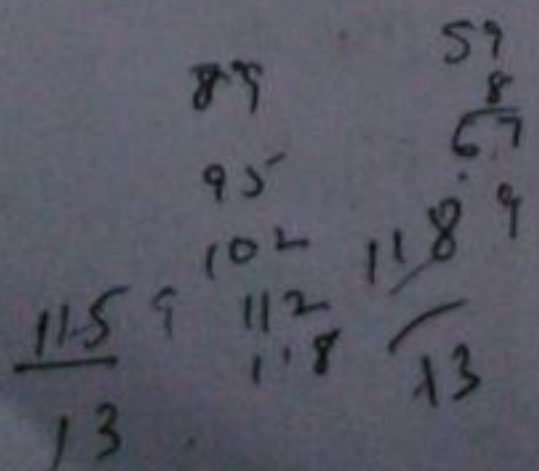 59
8
67
89
95
102
112
118
118 9
13
115 9
13